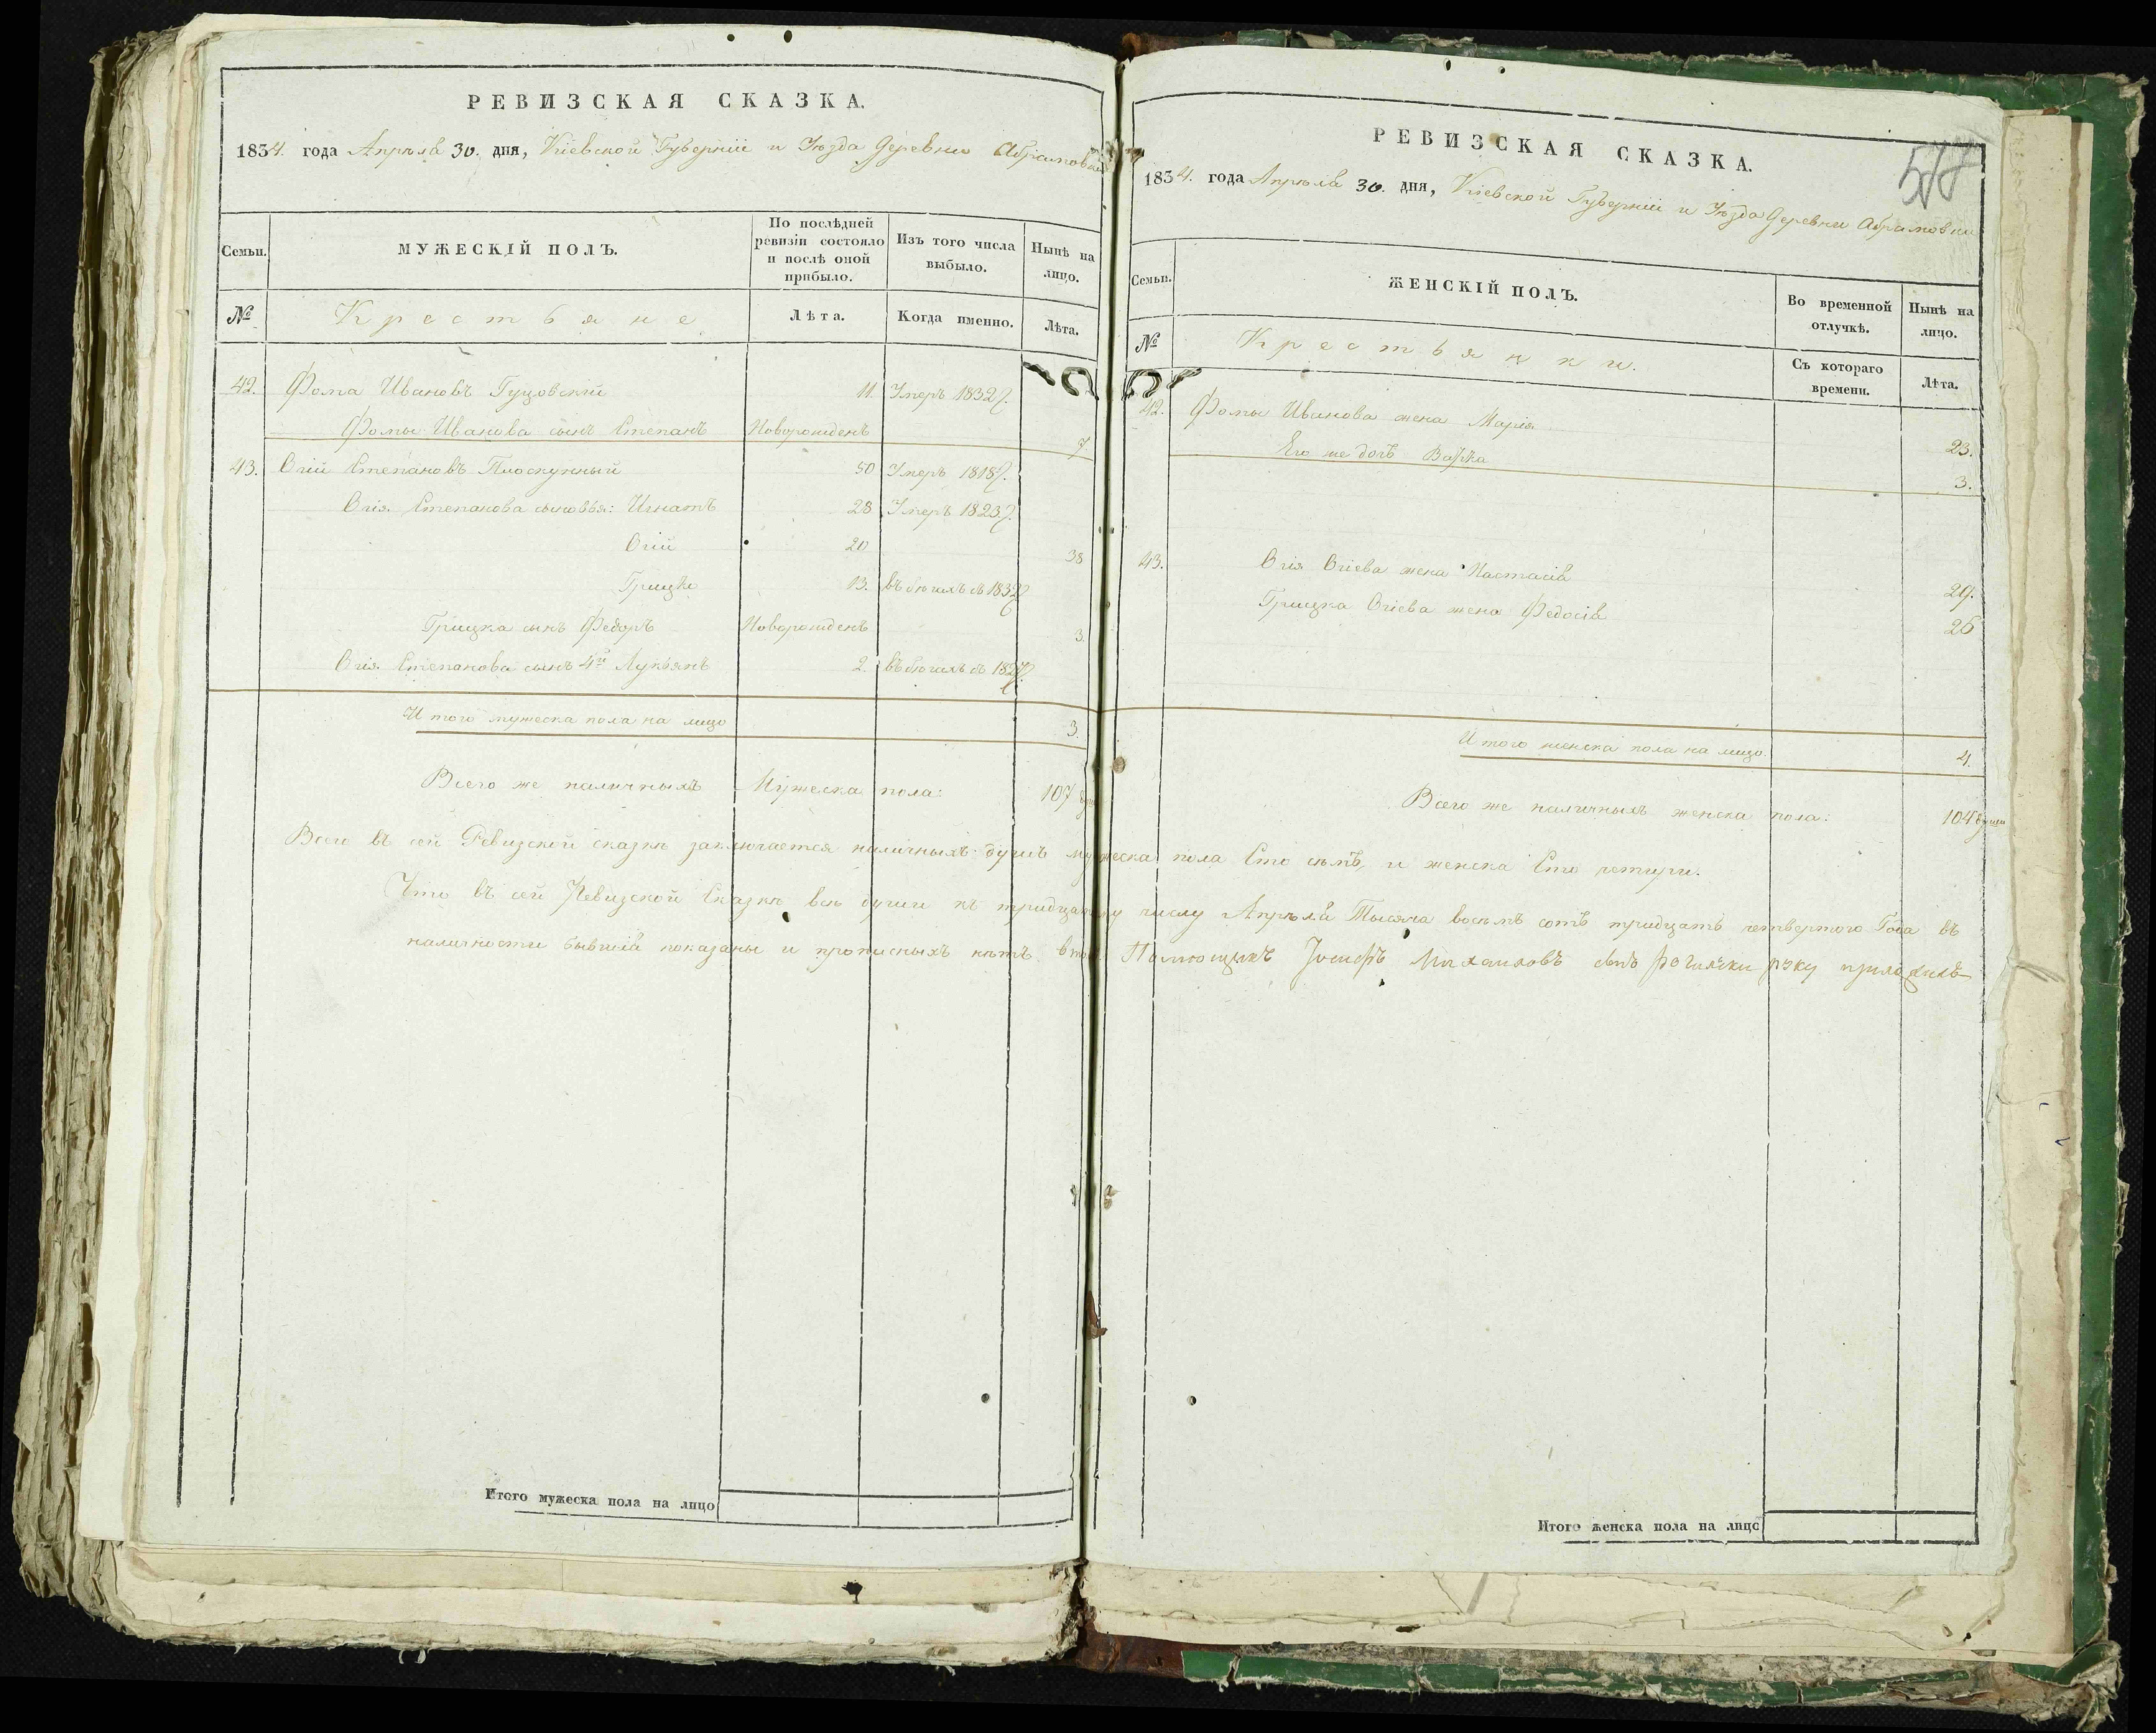 РЕВИЗСКАЯ СКАЗКА.
1834. года Апрѣля 30. дня, Кіевской Губерніи и Уѣзда деревни Абрамовки
Семьи.
МУЖЕСКІЙ ПОЛЪ.
По послѣдней ревизіи состояло и послѣ оной прибыло.
Изъ того числа выбыло.
Нынѣ на лицо.
№
Крестьяне
Лѣта.
Когда именно.
Лѣта.
42. Фома Ивановъ 11 Умеръ 1832
Фомы Иванова сынъ Степанъ Новорожденъ 7
43. Степановъ 50 Умеръ 1818
Степанова сыновья: Игнатъ 28 Умеръ 1823
20 38
Грицко 13. въ бѣгахъ съ
Грицка сынъ Федоръ Новорожденъ 3.
Степанова сынъ 4й Лукьянъ 2. въ бѣгахъ съ 1827
Итого мужеска пола на лицо 3.
Всего же наличныхъ Мужеска пола: 107
РЕВИЗСКАЯ СКАЗКА.
1834. года Апрѣля 30. дня, Кіевской Губерніи и Уѣзда деревни Абрамовки
Семьи.
ЖЕНСКІЙ ПОЛЪ.
Во временной отлучкѣ.
Нынѣ на лицо.
№
Крестьянки.
Съ котораго времени.
Лѣта.
42. Фомы Иванова жена Марія 23.
Его же дочь 3.
43. жена Настасія 29.
Грицка жена Федосія 26
Итого женска пола на лицо. 4.
Всего же наличныхъ женска пола: 104 души
Всего въ сей Ревизской сказкѣ заключается наличныхъ душъ мужеска пола Сто семь, и женска Сто четыри.
Что въ сей Ревизской Сказкѣ всѣ души къ тридцатому числу Апрѣля Тысяча восемь сотъ тридцать четвертого Года въ
наличности бывшія показаны и прописныхъ нѣтъ в томъ Помющикъ Михаиловъ сынъ руку приложилъ
Итого мужеска пола на лицо
Итого женска пола на лицо